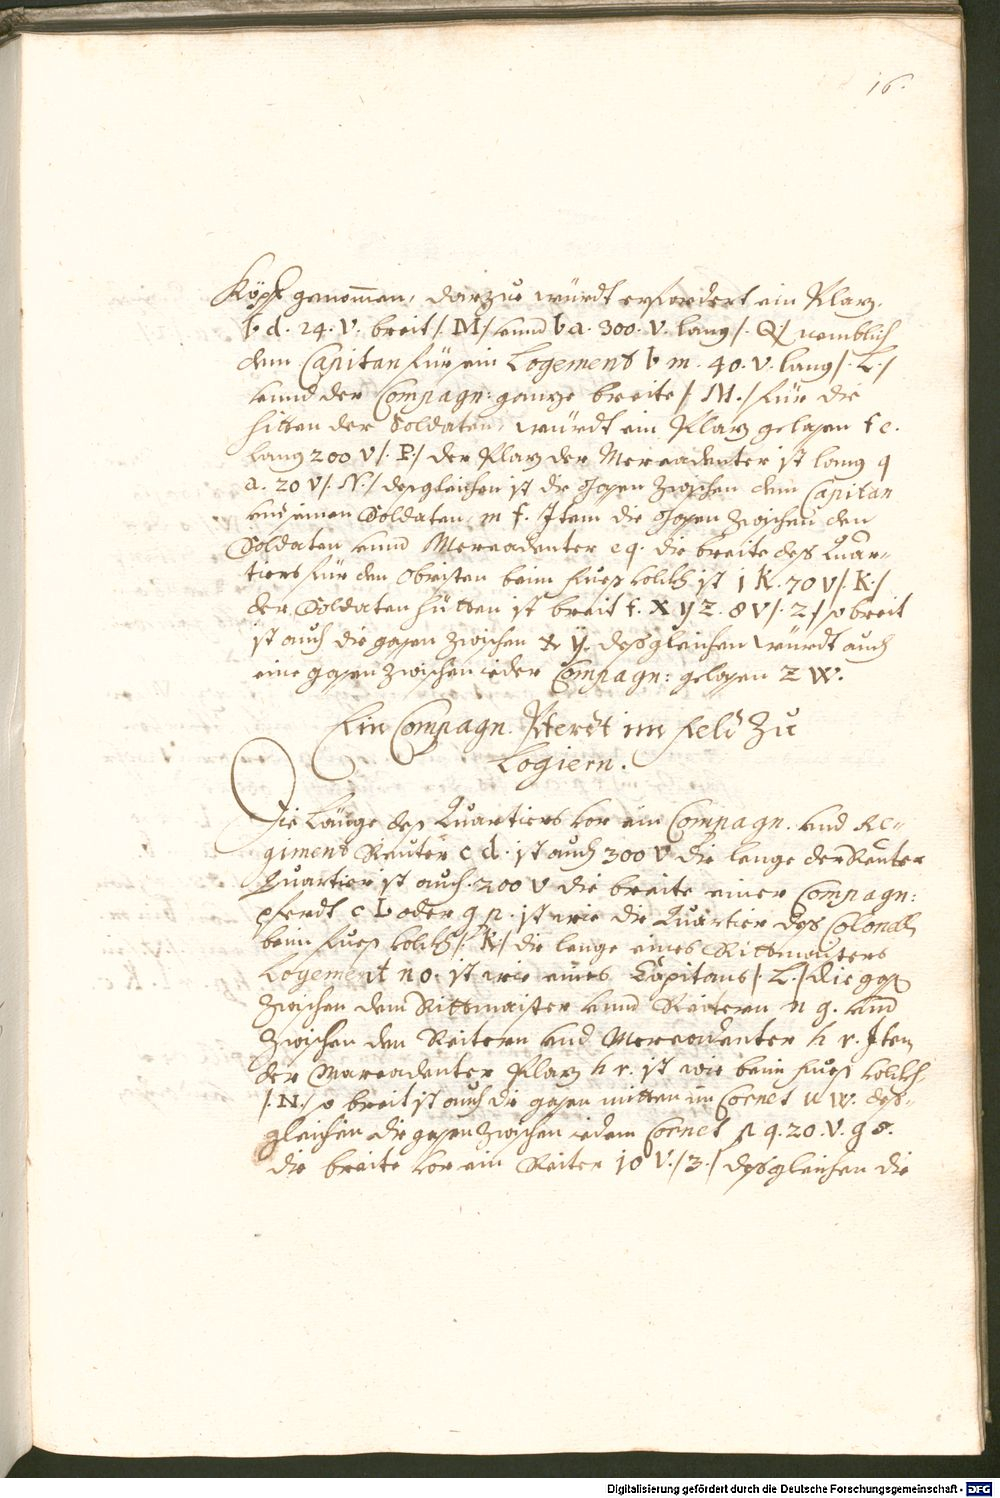 16.
Köpf genommen, darzue würdt erfordert ein Plaz,
b d. 24. v. breit /. M / unnd b a. 300. v. lang /. Q / nemblich
dem Capitan für ein Logement b m. 40. v. lang /. L /
unnd der Compagn: ganze breite /. M. / für die
hitten der Soldaten, würdt ein Plaz gelassen f e.
lang 200 v /. P. / der Plaz der Mercadenter ist lang q
a. 20 v /. N. / desgleichen ist die gassen zwischen dem Capitan
und seinen Soldaten m f. Item die gassen zwischen den
Soldaten unnd Mercadenter e q. die breite deß Quar-
tiers für den Obristen beim fues volckh ist i K. 70 v /. K. /
der Soldaten hütten ist breit t. x y z. 8 v /. 2 / so breit
ist auch die gassen zwischen x y. desgleichen würdt auch
eine gassen zwischen ieder Compagn: gelassen z w.
Ein Compagn. Pferdt im Feld zu
Logiern.
Die Länge des Quartiers vor ein Compagn. und Re-
giment Reuter c d. ist auch 300 v die lenge der Reuter
Quartier ist auch. 200 v die breite einer Compagn:
pferdt c b oder q p. ist wie die Quartier des Colonell
beim fues volckh /. K / die lenge eines Rittmeisters
Logement n o. ist wie eines Capitans /. L. / die gass
zwischen dem Rittmaister unnd Reitern n g. und
zwischen den Reitern und Mercadenter h r. Item
der Marcadenter Plaz h r. ist wie beim fues volckh
/. N. / so breit ist auch die gassen mitten im Cornet u w. des-
gleichen die gassen zwischen iedem Cornet p q. 20. v. g s.
die breite vor ein Reiter 10 v. / 3. / desgleichen die
Digitalisierung gefördert durch die Deutsche Forschungsgemeinschaft - DFG